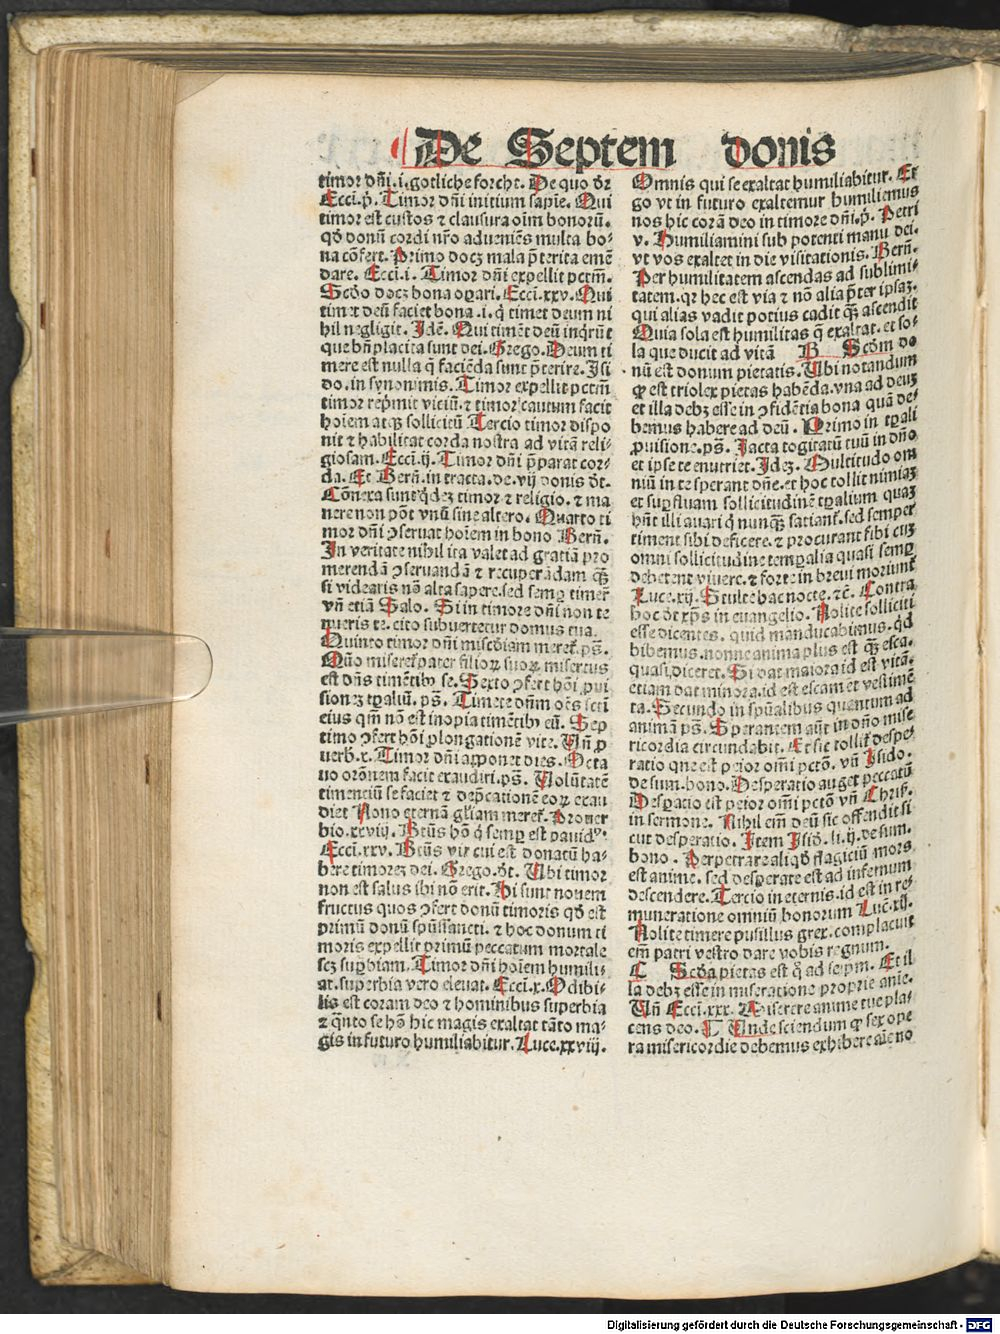 De Septem donis
timor dñi.i.gotliche forcht. De quo dr
Ecci.p̄. Timor dñi initium sapīe. Qui
timor est custos ⁊ clausura oīm bonorū.
qd̄ donū cordi nr̄o adueniēs multa bo-
na cōfert. Primo docꝫ mala p̄terita emē
dare. Ecci.i. Timor dñi expellit pctm̄.
Scd̄o docꝫ bona oꝑari. Ecci.xxv. Qui
timet deū faciet bona.i.q̄ timet deum ni
hil negligit. Idē. Qui timēt deū inq̄rūt
que bn̄placita sunt dei. Grego. Deum ti
mere est nulla q̄ faciēda sunt p̄terire. Isi
do.in synonimis. Timor expellit pctm̄
timor rep̄mit viciū.⁊ timor cautum facit
hoīem atqꝫ sollicitū Tercio timor dispo
nit ⁊ habilitat corda nostra ad vitā reli-
giosam. Ecci.ij. Timor dñi p̄parat cor-
da. Et Bern̄.in tracta.de.vij donis dt̄.
Cōnexa sunt q̇dēꝫ timor ⁊ religio.⁊ ma
nere non pōt vnū sine altero. Quarto ti
mor dñi ꝯseruat hoīem in bono Bern̄.
In veritate nihil ita valet ad gratiā pro
merendā ꝯseruandā ⁊ recuperādam qꝫ̄
si videaris nō alta sapere.sed semꝑ timer̄
vn̄ etiā Salo. Si in timore dñi non te
nueris te.cito subuertetur domus tua.
Quinto timor dñi miscd̄iam meret̄.ps̄.
Quō miseret̄ pater filioꝝ suoꝝ misertus
est dn̄s timētibꝰ se. Sexto ꝯfert hōi ꝓui
sionēꝫ tꝑaliū. ps̄. Timete dn̄m oēs scti
eius qm̄ nō est inopia timētibꝰ eū. Sep
timo ꝯfert hōi ꝓlongationē vite. Vn̄ ꝓ
uerb.x. Timor dñi apponet dies. Octa
uo orōnem facit exaudiri.ps̄. Volūtatē
timentiū se faciet ⁊ dep̄cationē eoꝝ exau
diet Nono eternā gl̄iam meret̄. Prouer
bio.xxviij. Btūs hō q̄ semꝑ est pauidꝰ.
Ecci.xxv. Btūs vir cui est donatū ha-
bere timoreꝫ dei. Grego.dt̄. Vbi timor
non est salus ibi nō erit. Ibi sunt nouem
fructus quos ꝯfert donū timoris qd̄ est
primū donū spūssancti. ⁊ hoc donum ti
moris expellit primū peccatum mortale
scꝫ suꝑbiam. Timor dñi hoīem humili-
at. superbia vero eleuat. Ecci.x. Odibi-
lis est coram deo ⁊ hominibus superbia
⁊ q̄nto se hō hic magis exaltat tāto ma-
gis in futuro humiliabitur. Luce.xxviij.
Omnis qui se exaltat humiliabitur. Er
go vt in futuro exaltemur humiliemus
nos hic corā deo in timore dñi.p̄. Petri
v. Humiliamini sub potenti manu dei.
vt vos exaltet in die visitationis. Bern̄.
Per humilitatem ascendas ad sublimi-
tatem.qꝛ hec est via ⁊ nō alia p̄ter ipsaꝫ.
qui alias vadit potius cadit qꝫ̄ ascendit
Quia sola est humilitas q̄ exaltat.et so-
la que ducit ad vitā B Scd̄m do
nū est donum pietatis. Vbi notandum
ꝙ est triplex pietas habēda. vna ad deuꝫ
et illa debꝫ esse in ꝯfidētia bona quā de-
bemus habere ad deū. Primo in tꝑali
ꝓuisione.ps̄. Iacta cogitatū tuū in dn̄o
et ipse te enutriet. Ideꝫ. Multitudo om
niū in te sperant dn̄e.et hoc tollit nimiaꝫ
et suꝑfluam sollicitudinē tꝑalium quaꝫ
hn̄t illi auari q̄ nunqꝫ̄ satiant̄.sed semper
timent sibi deficere.⁊ procurant sibi cuꝫ
omni sollicitudine temꝑalia quasi semꝑ
deberent viuere.⁊ forte in breui moriunt̄
Luce.xij. Stulte hac nocte.⁊c̄. Contra
hoc dt̄ xp̄s in euangelio. Nolite solliciti
esse dicentes. quid manducabimus.qd̄
bibemus.nonne anima plus est qꝫ̄ esca.
quasi diceret. Si dat maiora id est vitā.
etiam dat minora.id est escam et vestimē
ta. Secundo in spūalibus quantum ad
animā ps̄. Sperantem aūt in dn̄o mise
ricordia circundabit. Et sic tollit̄ despe-
ratio que est peior om̄i pctō. vn̄ Isido.
de sum.bono. Desperatio auget peccatū
Desꝑatio est peior om̄i pctō vn̄ Chris̄.
in sermone. Nihil em̄ deū sic offendit si
cut desperatio. Item Isid̄. li.ij.de sum.
bono. Perpetrare aliqd̄ flagiciū mors
est anime. sed desperate est ad infernum
descendere. Tercio in eternis.id est in re-
muneratione omniū bonorum Luc̄.xij.
Nolite timere pusillus grex.complacuit
em̄ patri vestro dare vobis regnum.
C Scd̄a pietas est q̄ ad seip̄m. Et il
la debꝫ esse in miseratione proprie anīe.
Vn̄ Ecci.xxx. Miserere anime tue pla-
cens deo. Vnde sciendum ꝙ sex ope
ra misericordie debemus exhibere aīe no
Digitalisierung gefördert durch die Deutsche Forschungsgemeinschaft - DFG